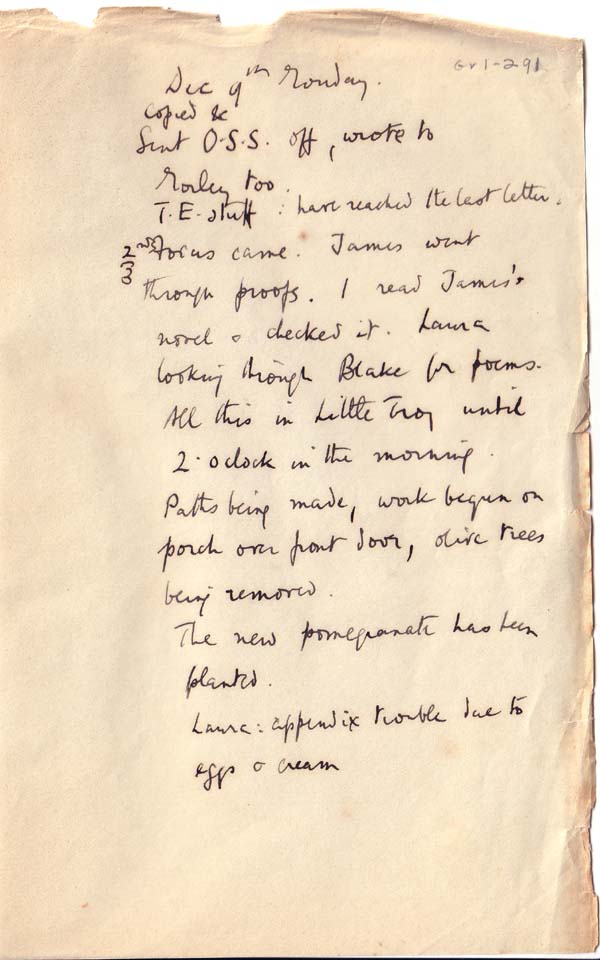 Gr1-291
Dec 9th Monday.
copied &
Sent O.S.S. off, wrote to
Morley too.
T.E. stuff : have reached the last letter.
2nd Focus came. James went
through proofs. I read James's
novel & checked it. Laura
looking through Blake for poems.
All this in Little Troy until
2. oclock in the morning.
Paths being made, work begun on
porch over front door, olive trees
being removed.
The new pomegranate has been
planted.
Laura: appendix trouble due to
eggs & cream